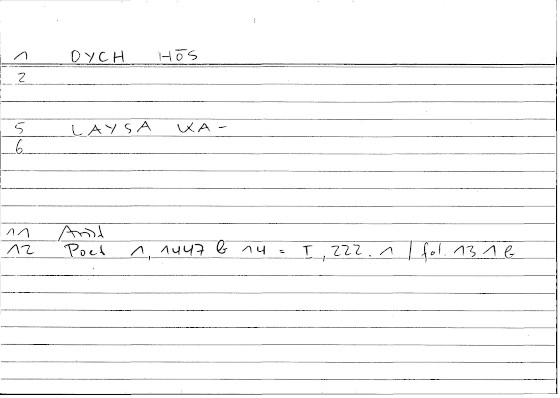 1 DYCH HŌS
2
5 LAYSA KA-
6
11 Arist
12 Poet 1, 1447 b 14 = I, 222.1 / fol. 131 b